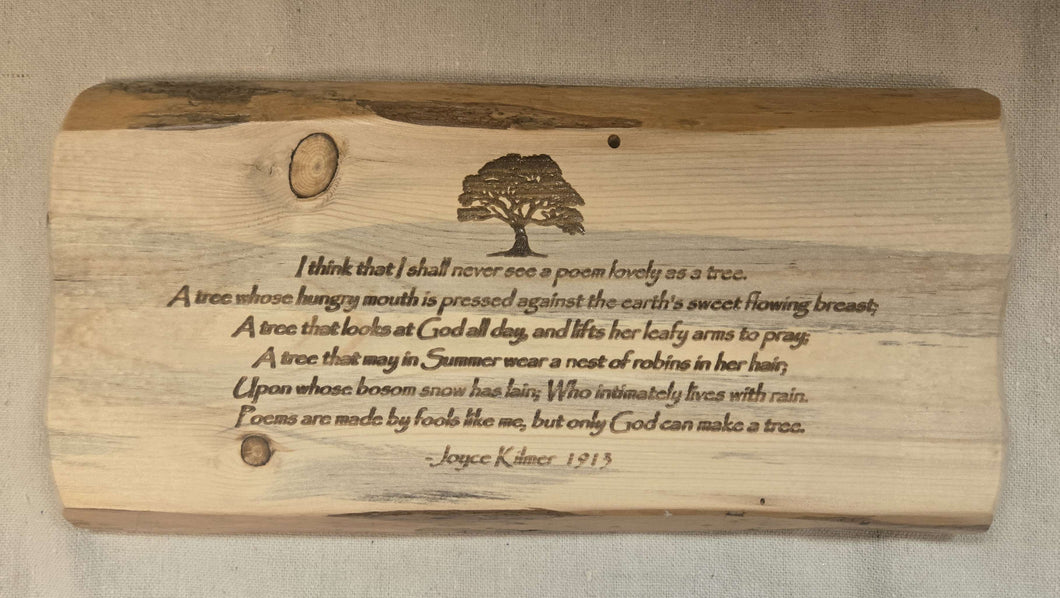 I think that I shall never see a poem lovely as a tree.
A tree whose hungry mouth is pressed against the earth's sweet flowing breast;
A tree that looks at God all day, and lifts her leafy arms to pray;
A tree that may in Summer wear a nest of robins in her hair;
Upon whose bosom snow has lain; Who intimately lives with rain.
Poems are made by fools like me, but only God can make a tree.
-Joyce Kilmer 1913